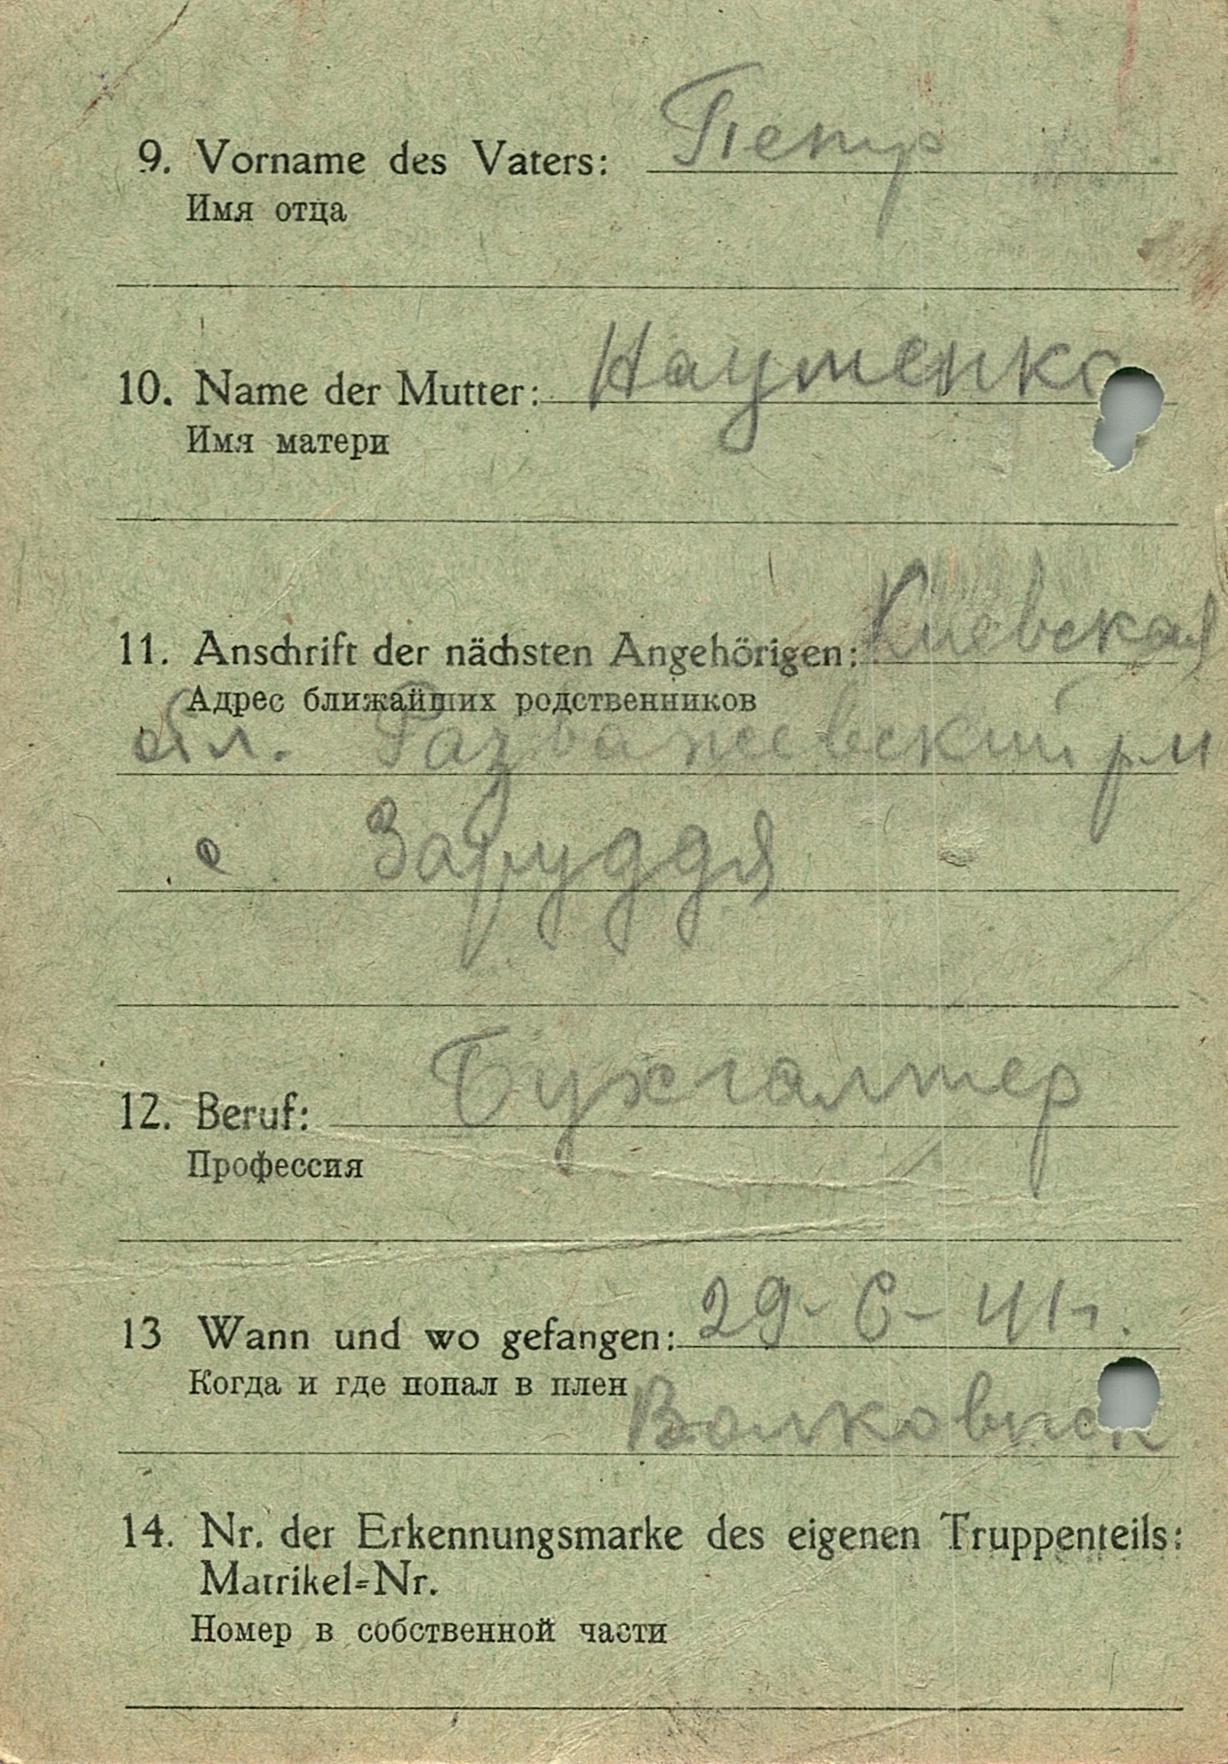 9. Vorname des Vaters: Петр
Имя отца
10. Name der Mutter: Науменко
Имя матери
11. Anschrift der nächsten Angehörigen: Киевская
Адрес ближайших родственников
обл. Розважевский
с Заруддя
12. Beruf: Бухгалтер
Профессия
13 Wann und wo gefangen: 29-6-41г.
Когда и где попал в плен
Волковиск
14. Nr. der Erkennungsmarke des eigenen Truppenteils:
Matrikel=Nr.
Номер в собственной части